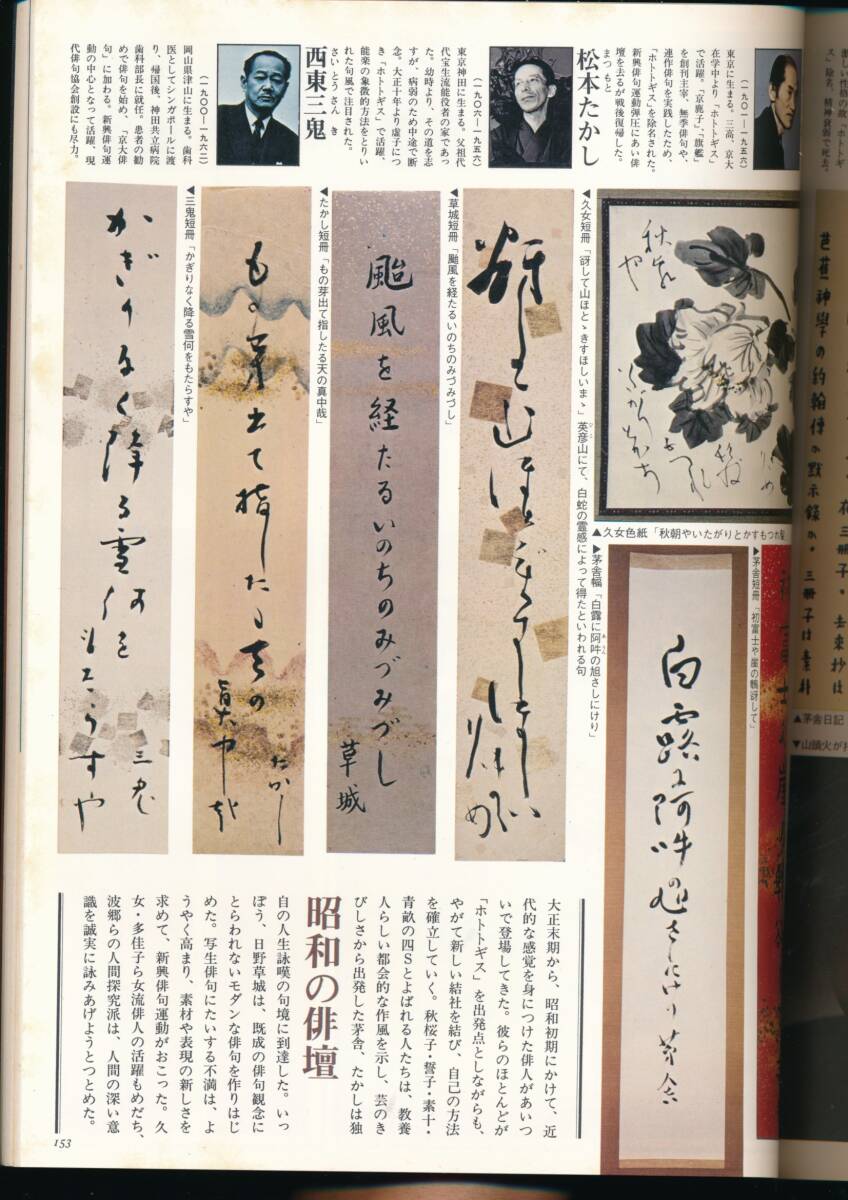 (一九〇一—一九五六)
東京に生まる。三高、京大
在学中より「ホトトギス」
で活躍。「京鹿子」、「旗艦」
を創刊主宰、無季俳句や、
連作俳句を実践したため、
「ホトトギス」を除名された。
新興俳句運動弾圧にあい俳
壇を去るが戦後復帰した。
松本たかし
まつもと
(一九〇六—一九五六)
東京神田に生まる。父祖代
代宝生流能役者の家であっ
た。幼時より、その道を志
すが、病弱のため中途で断
念。大正十年より虚子につ
き「ホトトギス」で活躍、
能楽の象徴的方法をとりい
れた句風で注目された。
西東三鬼
さいとうさんき
(一九〇〇—一九六二)
岡山県津山に生まる。歯科
医としてシンガポールに渡
り、帰国後、神田共立病院
歯科部長に就任。患者の勧
めで俳句を始め、「京大俳
句」に加わる。新興俳句運
動の中心となって活躍、現
代俳句協会創設にも尽力。
▲久女色紙「秋朝やいたがりとかすもつれ髪
▶茅舎短冊「初富士や崖の鵯谺して」
白露に阿吽の旭さしにけり 茅舎
▶茅舎幅「白露に阿吽の旭さしにけり」
あうん
◀久女短冊「谺して山ほとゝぎすほしいまゝ」英彦山にて、白蛇の霊感によって得たといわれる句
ひこ
谺して山ほとゝぎすほしいまゝ 久女
◀草城短冊「颱風を経たるいのちのみづみづし」
颱風を経たるいのちのみづみづし 草城
◀たかし短冊「もの芽出て指したる天の真中哉」
もの芽出て指したる天の真中哉 たかし
◀三鬼短冊「かぎりなく降る雪何をもたらすや」
かぎりなく降る雪何をもたらすや 三鬼
大正末期から、昭和初期にかけて、近
代的な感覚を身につけた俳人があいつ
いで登場してきた。彼らのほとんどが
「ホトトギス」を出発点としながらも、
やがて新しい結社を結び、自己の方法
を確立していく。秋桜子・誓子・素十・
青畝の四Sとよばれる人たちは、教養
人らしい都会的な作風を示し、芸のき
びしさから出発した茅舎、たかしは独
昭和の俳壇
自の人生詠嘆の句境に到達した。いっ
ぽう、日野草城は、既成の俳句観念に
とらわれないモダンな俳句を作りはじ
めた。写生俳句にたいする不満は、よ
うやく高まり、素材や表現の新しさを
求めて、新興俳句運動がおこった。久
女・多佳子ら女流俳人の活躍もめだち、
波郷らの人間探究派は、人間の深い意
識を誠実に詠みあげようとつとめた。
153
芭蕉神學の約翰傳か黙示錄か。三冊子は素朴
▲茅舎日記
▼山頭火が